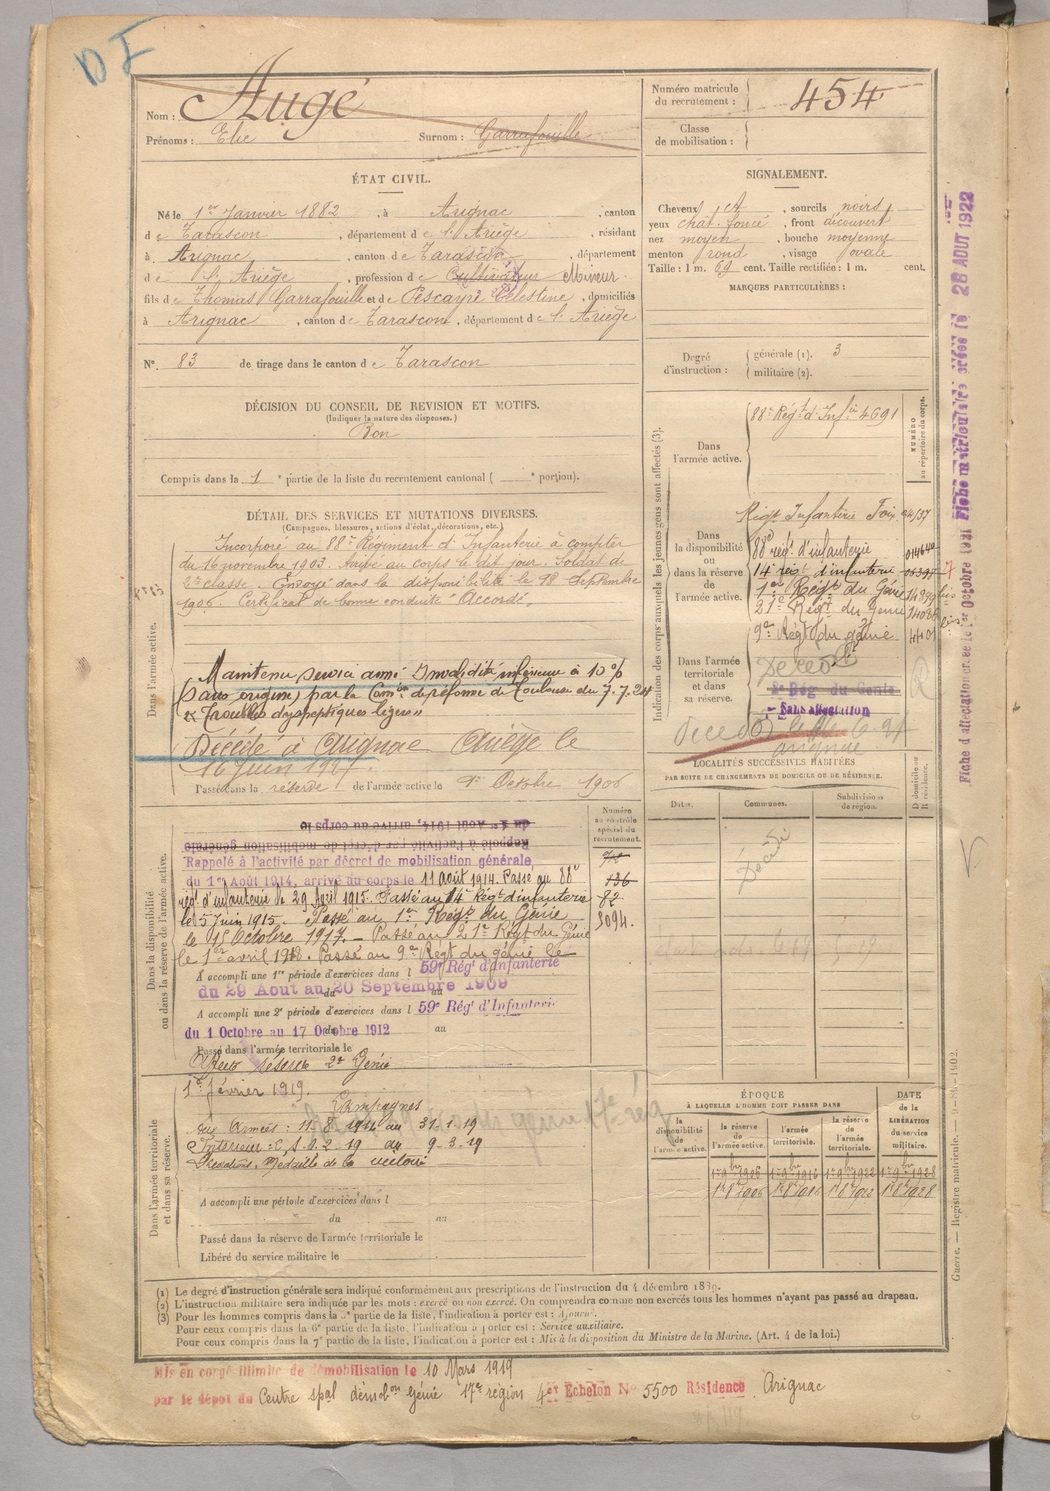 DF
Nom : Augé
Prénoms : Elie Surnom : Garrafouille
Numéro matricule du recrutement : 454
Classe de mobilisation :
ÉTAT CIVIL.
Né le 1er Janvier 1882, à Arignac, canton
de Tarascon, département de l'Ariège, résidant
à Arignac, canton de Tarascon, département
de l'Ariège, profession de Cultivateur Mineur.
fils de Thomas Garrafouille et de Pescayre Célestine, domiciliés
à Arignac, canton de Tarascon, département de l'Ariège
N° 83 de tirage dans le canton de Tarascon
SIGNALEMENT.
Cheveux ct, sourcils noirs
yeux chat. foncé, front découvert
nez moyen, bouche moyenne
menton rond, visage ovale
Taille : 1 m. 69 cent. Taille rectifiée : 1 m. cent.
MARQUES PARTICULIÈRES :
Degré d'instruction : générale (1). 3
militaire (2).
DÉCISION DU CONSEIL DE REVISION ET MOTIFS.
(Indiquer la nature des dispenses.)
Bon
Compris dans la 1e partie de la liste du recrutement cantonal ( e portion).
DÉTAIL DES SERVICES ET MUTATIONS DIVERSES.
(Campagnes, blessures, actions d'éclat, décorations, etc.)
Dans l'armée active.
Incorporé au 88e Régiment d'Infanterie à compter
du 16 novembre 1903. Arrivé au corps le dit jour. Soldat de
2e classe. Envoyé dans la disponibilité le 18 Septembre
1906. Certificat de bonne conduite "Accordé"
Maintenu service armé Invalidité inférieure à 10 %
(sans origine) par la Comon de réforme de Toulouse du 7.7.24
"Troubles dyspeptiques légers"
Décédé à Arignac Ariège le
16 Juin 1927.
Passé dans la réserve de l'armée active le 1er Octobre 1906
Indication des corps auxquels les jeunes gens sont affectés (3).
NUMÉRO au répertoire du corps.
Dans l'armée active. 88e Régt d'Infie 4691
Dans la disponibilité ou dans la réserve de l'armée active.
Régt Infanterie Foix
88e régt d'infanterie 014640
14e régt d'infanterie
1er Régt du Génie 14899 bis
21e Régt du Génie bis
9e Régt du génie 4401
Dans l'armée territoriale et dans sa réserve.
Décédé
Rég du Génie
Sans affectation
Décédé
arignac
LOCALITÉS SUCCESSIVES HABITÉES
PAR SUITE DE CHANGEMENTS DE DOMICILE OU DE RÉSIDENCE.
Dates. Communes. Subdivisions de région. D domicile ou R résidence.
Décédé
Numéro au contrôle spécial du recrutement.
136
82
3094.
Dans la disponibilité ou dans la réserve de l'armée active.
Rappelé à l'activité par décret de mobilisation générale
du 1er Août 1914, arrivé au corps le
Rappelé à l'activité par décret de mobilisation générale,
du 1er Août 1914, arrivé au corps le 11 août 1914. Passé au 88e
régt d'infanterie le 29 Avril 1915. Passé au 14e Régt d'infanterie
le 5 Juin 1915. Passé au 1er Régt du Génie
le 15 Octobre 1917. – Passé au 21e Régt du Génie
le 1er avril 1918. Passé au 9e Régt du génie le
A accompli une 1re période d'exercices dans l 59e Régt d'Infanterie
du 29 Aout au 20 Septembre 1909
A accompli une 2e période d'exercices dans l 59e Régt d'Infanterie
du 1 Octobre au 17 Octobre 1912 au
Passé dans l'armée territoriale le
Dans l'armée territoriale et dans sa réserve.
1er février 1919.
Campagnes
Aux Armées : 11.8.1914 au 31.1.19
Intérieur : 1.2.19 au 9-3-19
Médaille de la victoire
A accompli une période d'exercices dans l
du au
Passé dans la réserve de l'armée territoriale le
Libéré du service militaire le
ÉPOQUE
À LAQUELLE L'HOMME DOIT PASSER DANS
la disponibilité de l'armée active. la réserve de l'armée active. l'armée territoriale. la réserve de l'armée territoriale.
DATE de la LIBÉRATION du service militaire.
1er 9bre 1906 1er 9bre 1916 1er 9bre 1922 1er 9bre 1928
1er 8bre 1906 1er 8bre 1916 1er 8bre 1922 1er 8bre 1928
(1) Le degré d'instruction générale sera indiqué conformément aux prescriptions de l'instruction du 4 décembre 1889.
(2) L'instruction militaire sera indiquée par les mots : exercé ou non exercé. On comprendra comme non exercés tous les hommes n'ayant pas passé au drapeau.
(3) Pour les hommes compris dans la 5e partie de la liste, l'indication à porter est : Ajourné.
Pour ceux compris dans la 6e partie de la liste, l'indication à porter est : Service auxiliaire.
Pour ceux compris dans la 7e partie de la liste, l'indication à porter est : Mis à la disposition du Ministre de la Marine. (Art. 4 de la loi.)
Mis en congé illimité de démobilisation le 10 Mars 1919
par le dépôt du Centre spal démobon Génie 17e région 4et Echelon N° 5500 Résidence Arignac
Fiche d'affectation créée le 1er Octobre 1921 Fiche matriculaire créée le 26 AOUT 1922
Guerre. — Registre matricule. — 1902.